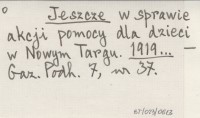 Jeszcze w sprawie
akcji pomocy dla dzieci
w Nowym Targu. 1919... –
Gaz. Podh. 7, nr 37.